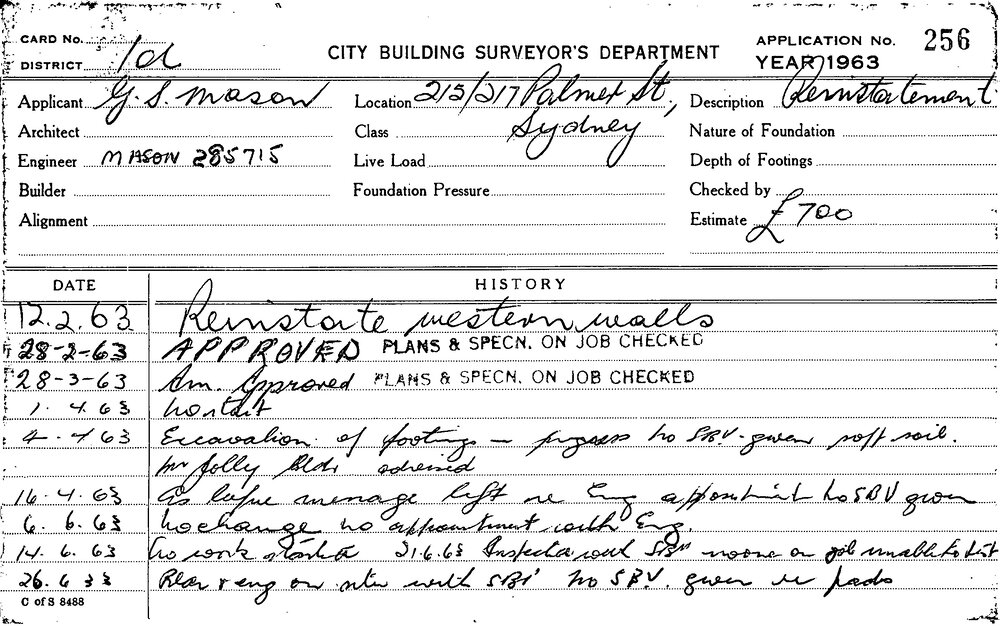 CARD No.
DISTRICT 1a
CITY BUILDING SURVEYOR'S DEPARTMENT
APPLICATION No. 256
YEAR 1963
Applicant G. S. Mason
Location 215/217 Palmer St, Sydney
Description Reinstatement
Architect
Class
Nature of Foundation
Engineer MASON 285715
Live Load
Depth of Footings
Builder
Foundation Pressure
Checked by
Alignment
Estimate £700
DATE HISTORY
12.2.63 Reinstate western walls
28-2-63 APPROVED PLANS & SPECN. ON JOB CHECKED
28-3-63 Am. Approved PLANS & SPECN. ON JOB CHECKED
1.4.63 No start
4.4.63 Excavation of footings – progress no SBV. given soft soil.
Mr Jolly Bldr advised
16.4.63 As before message left re Eng appointment no SBV given
6.6.63 No change no appointment with Eng.
14.6.63 No work started 21.6.63 Inspected with noone on job unable to
26.6 & eng on site with no S.B.V. given re pads
C of S 8488